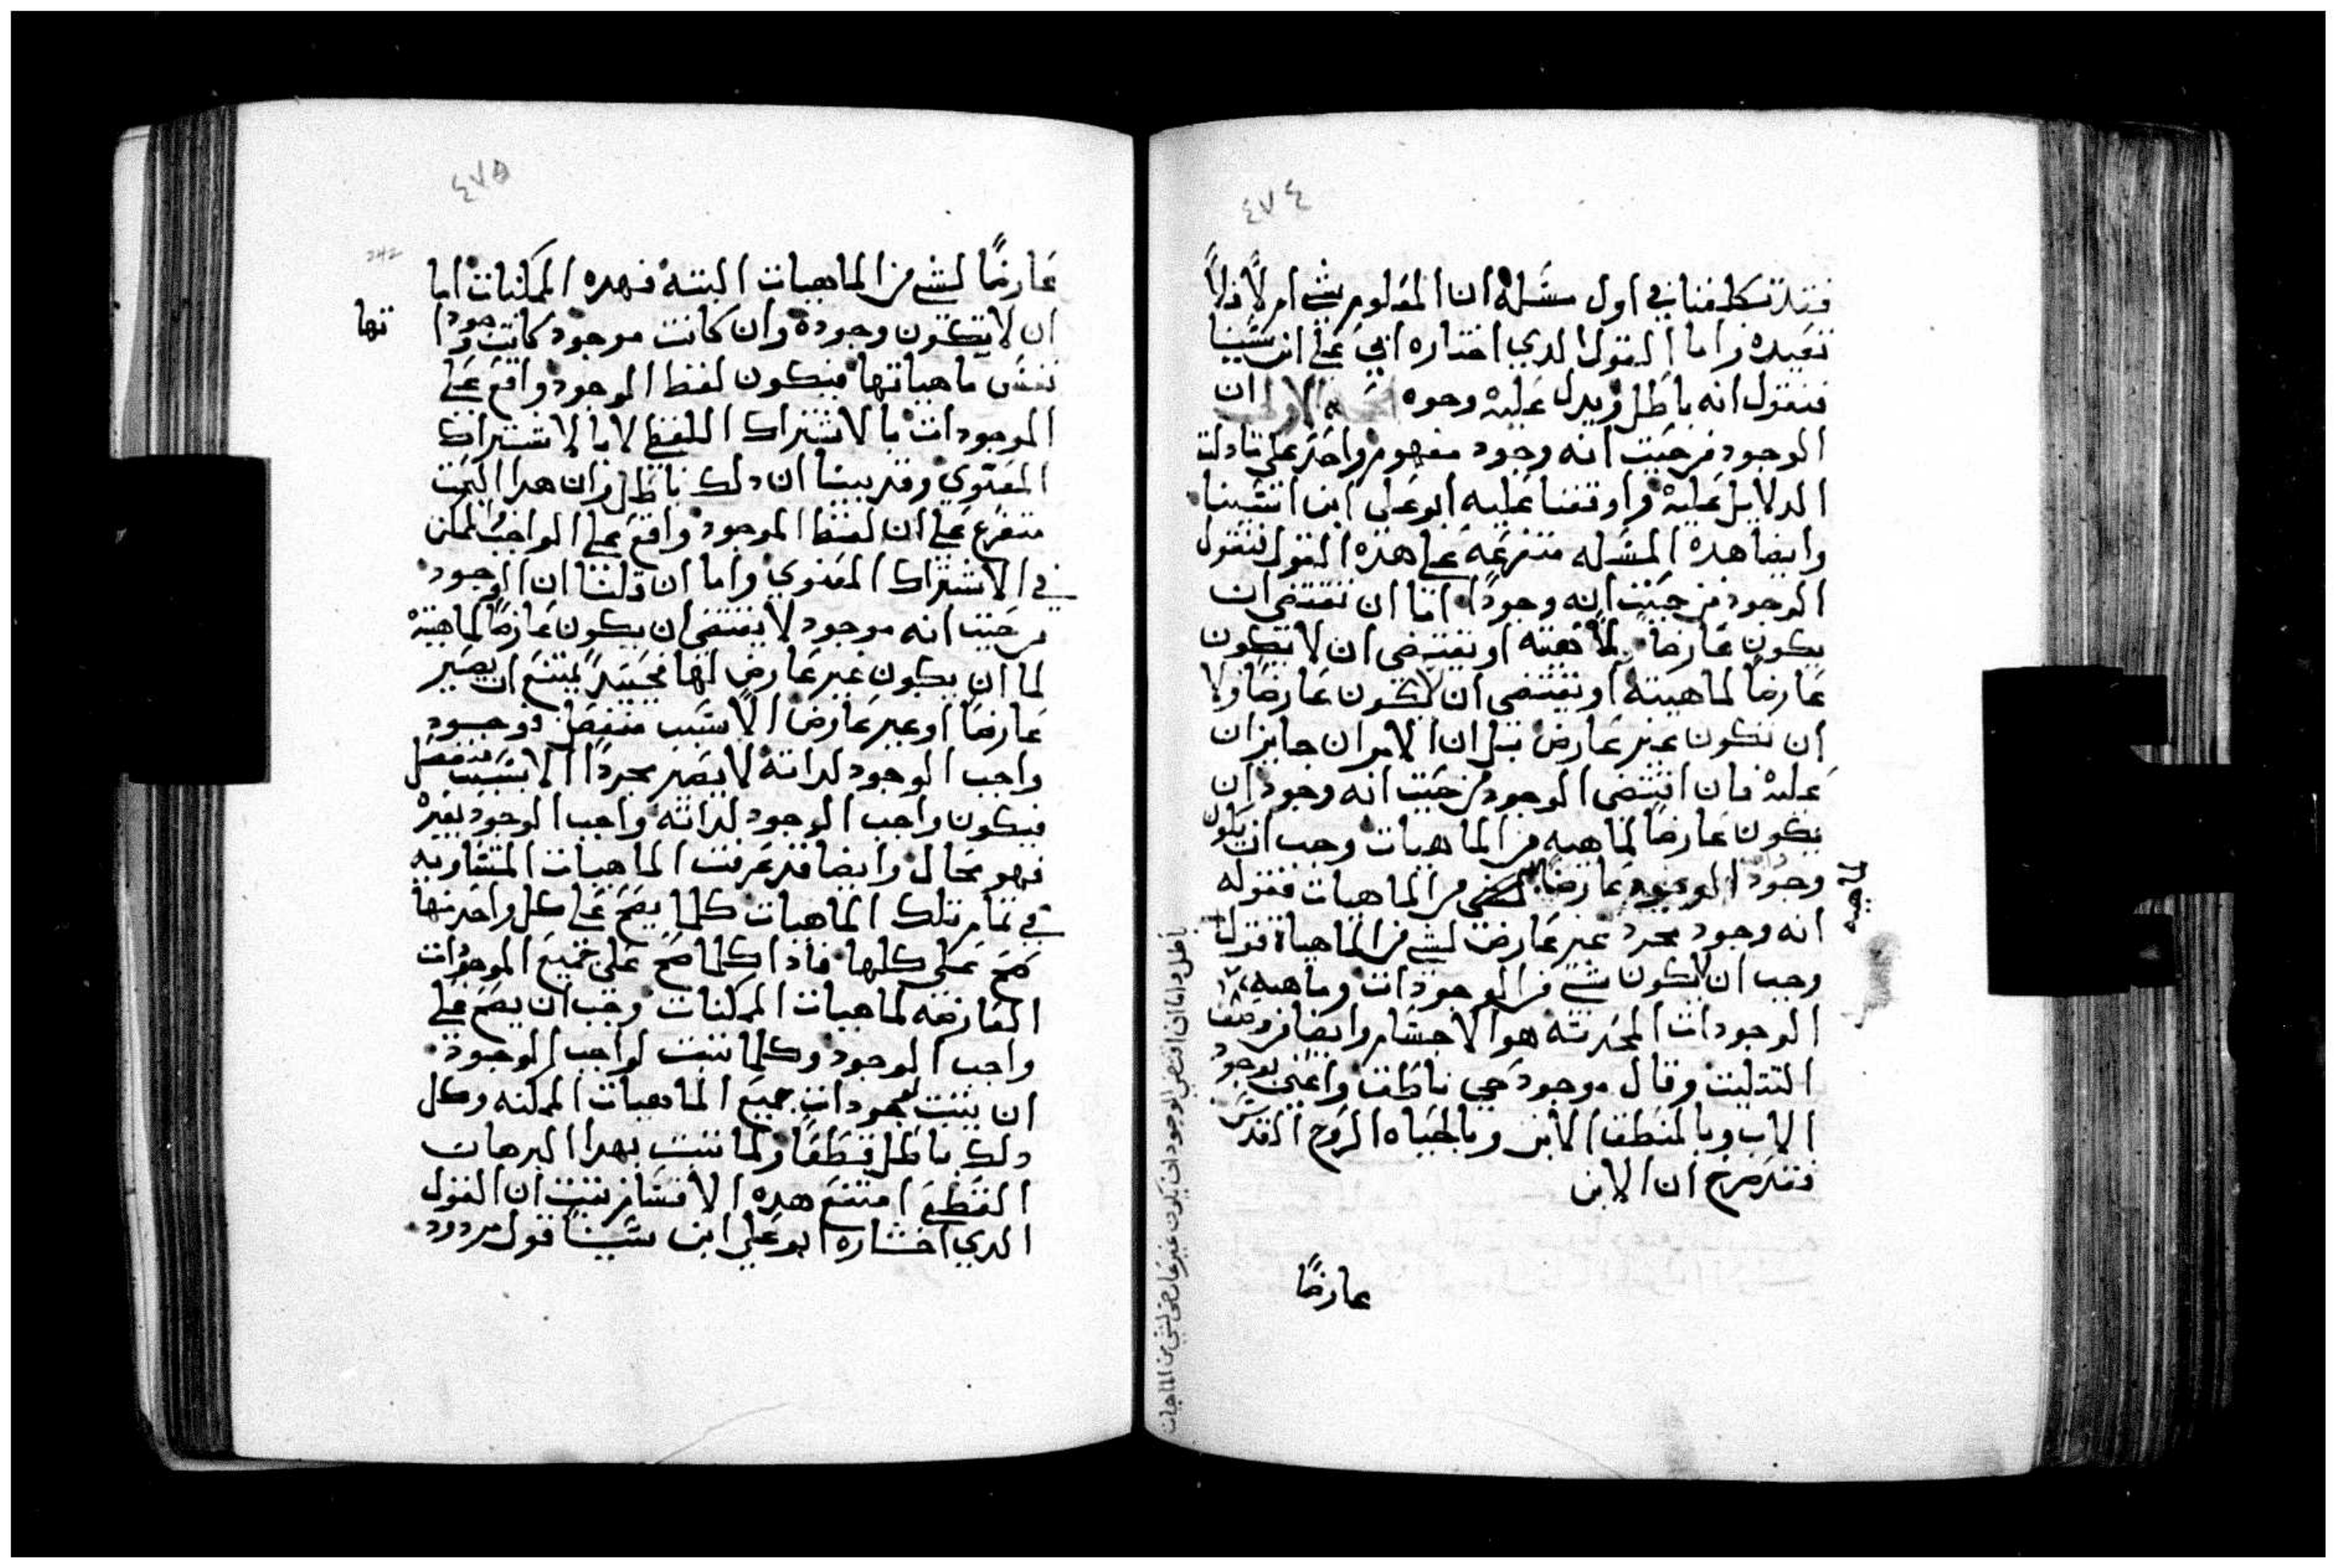 ٤٧٤
فقد تكلمنا في اول مسله ان المعلوم شي ام لا فلا
نعيده واما القول الدي اختاره ابي علي ابن سينا
فنقول انه باطل ويدل عليه وجوه الاول ان
الوجود من حيت انه وجود مفهوم واحد علي ما دلت
الدلايل عليه واوقفنا عليه ابو علي ابن اتسينا
وايضا هده المسله متفرعه علي هذه القول فنقول
الوجود من حيت انه وجودا اما ان تقتضي ان
يكون عارضا لماهيته او تقتضي ان لا تكون
عارضا لماهيته او تقتضي ان لا يكون عارضا ولا
ان تكون غير عارض بل ان الامران جايزان
عليه فان اقتضى الوجود من حيت انه وجود ان
يكون عارضا لماهيه من الماهيات وجب ان يكون
وجود الوجود عارضا من الماهيات فقوله
ماهيه
انه وجود مجرد غير عارض لشي من الماهياة قولنا
وجب ان لا يكون شي من الموجودات وماهيه
الوجودات المحدثه هو الاجسام وايضا من وصف
التتليت وقال موجود حي ناطق واعني بوجود
الاب وبالمنطق الابن وبالحياه الروح القدس
فقد صرح ان الابن
عارضا
باطل واما ان اقتضي الوجود ان يكون غير عارض لشي من الماهيات
٤٧٥
242
عارضا لشي من الماهيات البته فهده الممكنات اما
ان لا تكون وجودة وان كانت موجود كانت وجودا
تها
نفس ماهياتها فيكون لفظ الوجود واقع علي
الموجودات بالاشتراك اللفظي لا بالاشتراك
المعنوي وقد بينا ان دلك باطل وان هدا البحت
متفرع علي ان لفظ الموجود واقع علي الواجب الممكن
في الاشتراك المعنوي واما ان قلنا ان الوجود
من حيت انه موجود لا يقتضي ان يكون عارضا لماهيته
لما ان يكون غير عارض لها فحينيد يمتنع ان يصير
عارضا او غير عارض الا سبب منفصل فوجود
واجب الوجود لداته لا يصير مجردا الا بسبب منفصل
فيكون واجب الوجود لداته واجب الوجود بغيره
فهو محال وايضا قد عرفت الماهيات المتساويه
في تمام تلك الماهيات كلما يصح علي كل واحد منها
صح علي كلها فاذا كلما صح علي جميع الموجودات
العارضه لماهيات الممكنات وجب ان يصح علي
واجب الوجود وكلما تبت لواجب الوجود
ان يتبت لموجودات جميع الماهيات الممكنه وكل
دلك باطل قطعا ولما تبت بهدا البرهان
القطعي امتنع هده الاقسام تبت ان القول
الدي اختاره ابو علي ابن سينا قول مردود